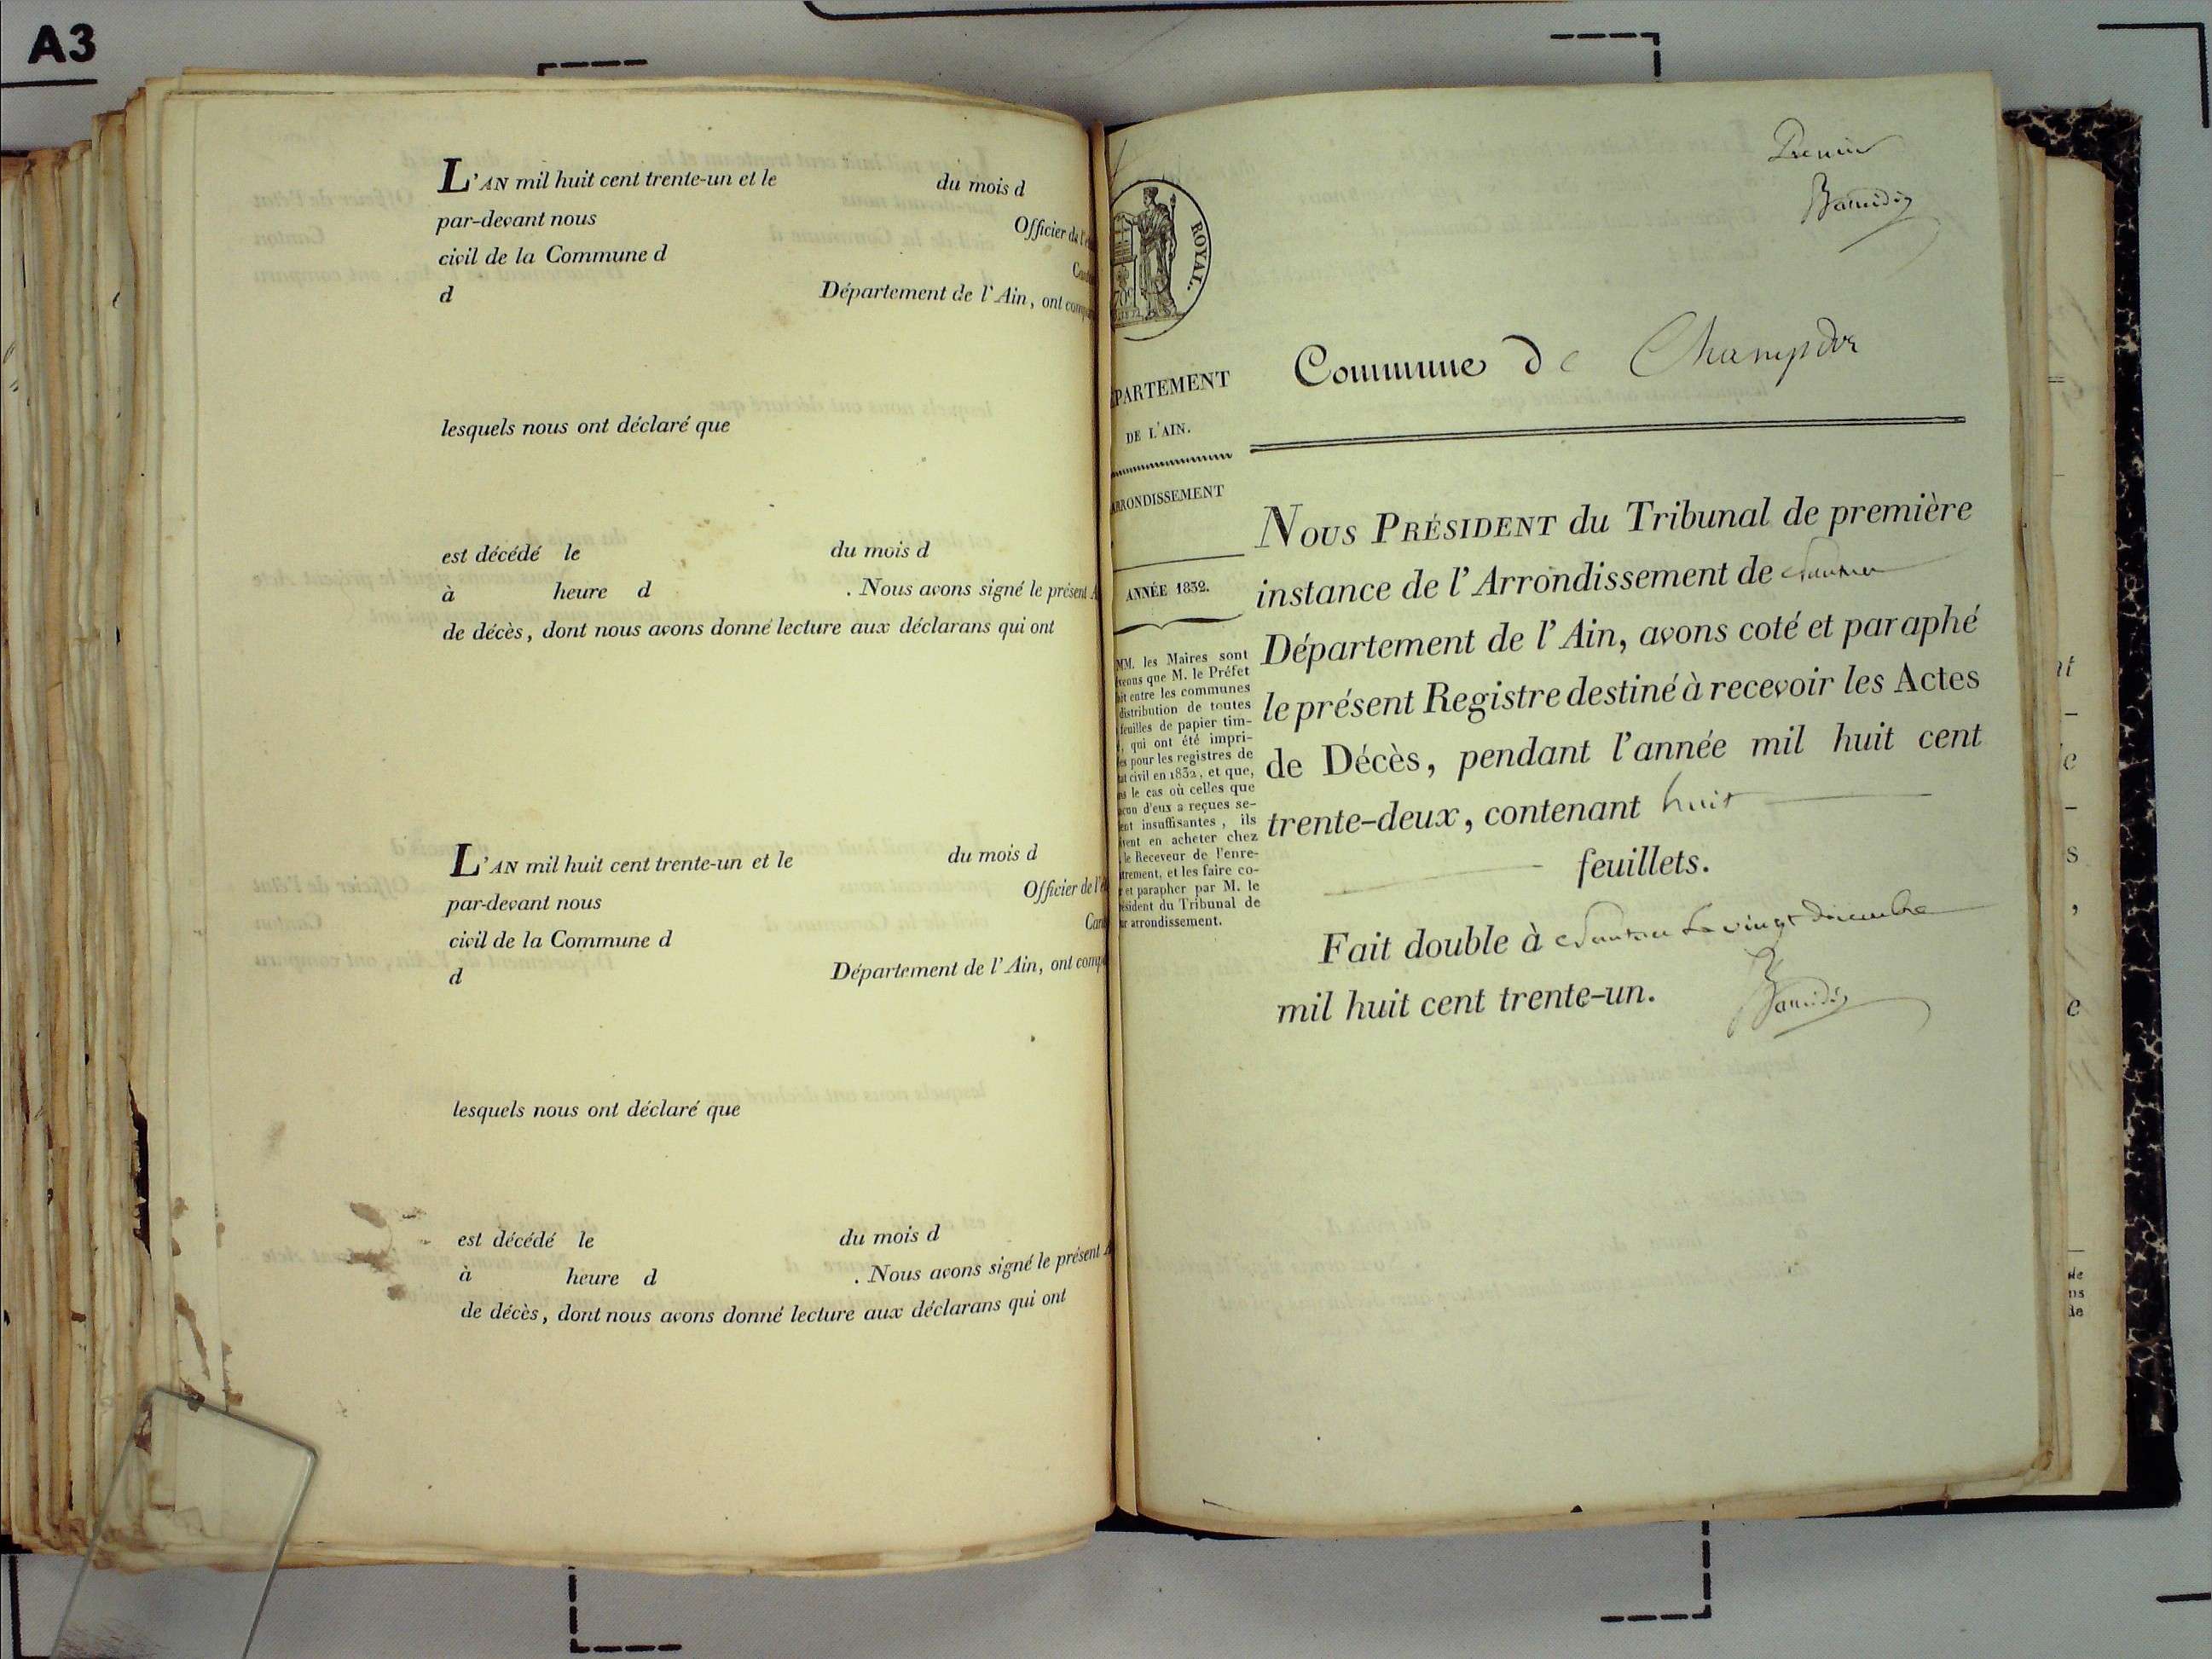 A3
L'AN mil huit cent trente-un et le du mois d
par-devant nous Officier de l'é
civil de la Commune d
d Département de l'Ain, ont comp
lesquels nous ont déclaré que
est décédé le du mois d
à heure d . Nous avons signé le présent A
de décès, dont nous avons donné lecture aux déclarans qui ont
L'AN mil huit cent trente-un et le du mois d
par-devant nous Officier de l'é
civil de la Commune d Cant
d Département de l'Ain, ont comp
lesquels nous ont déclaré que
est décédé le du mois d
à heure d . Nous avons signé le présent A
de décès, dont nous avons donné lecture aux déclarans qui ont
Premier
ROYAL.
PARTEMENT
DE L'AIN.
RRONDISSEMENT
ANNÉE 1832.
MM. les Maires sont
venus que M. le Préfet
ait entre les communes
distribution de toutes
feuilles de papier tim-
, qui ont été impri-
es pour les registres de
at civil en 1832, et que,
ns le cas où celles que
acun d'eux a reçues se-
ent insuffisantes, ils
ivent en acheter chez
le Receveur de l'enre-
trement, et les faire co-
r et parapher par M. le
ésident du Tribunal de
ur arrondissement.
Commune de Champdor
NOUS PRÉSIDENT du Tribunal de première
instance de l'Arrondissement de Nantua
Département de l'Ain, avons coté et paraphé
le présent Registre destiné à recevoir les Actes
de Décès, pendant l'année mil huit cent
trente-deux, contenant huit
feuillets.
Fait double à Nantua le vingt décembre
mil huit cent trente-un.